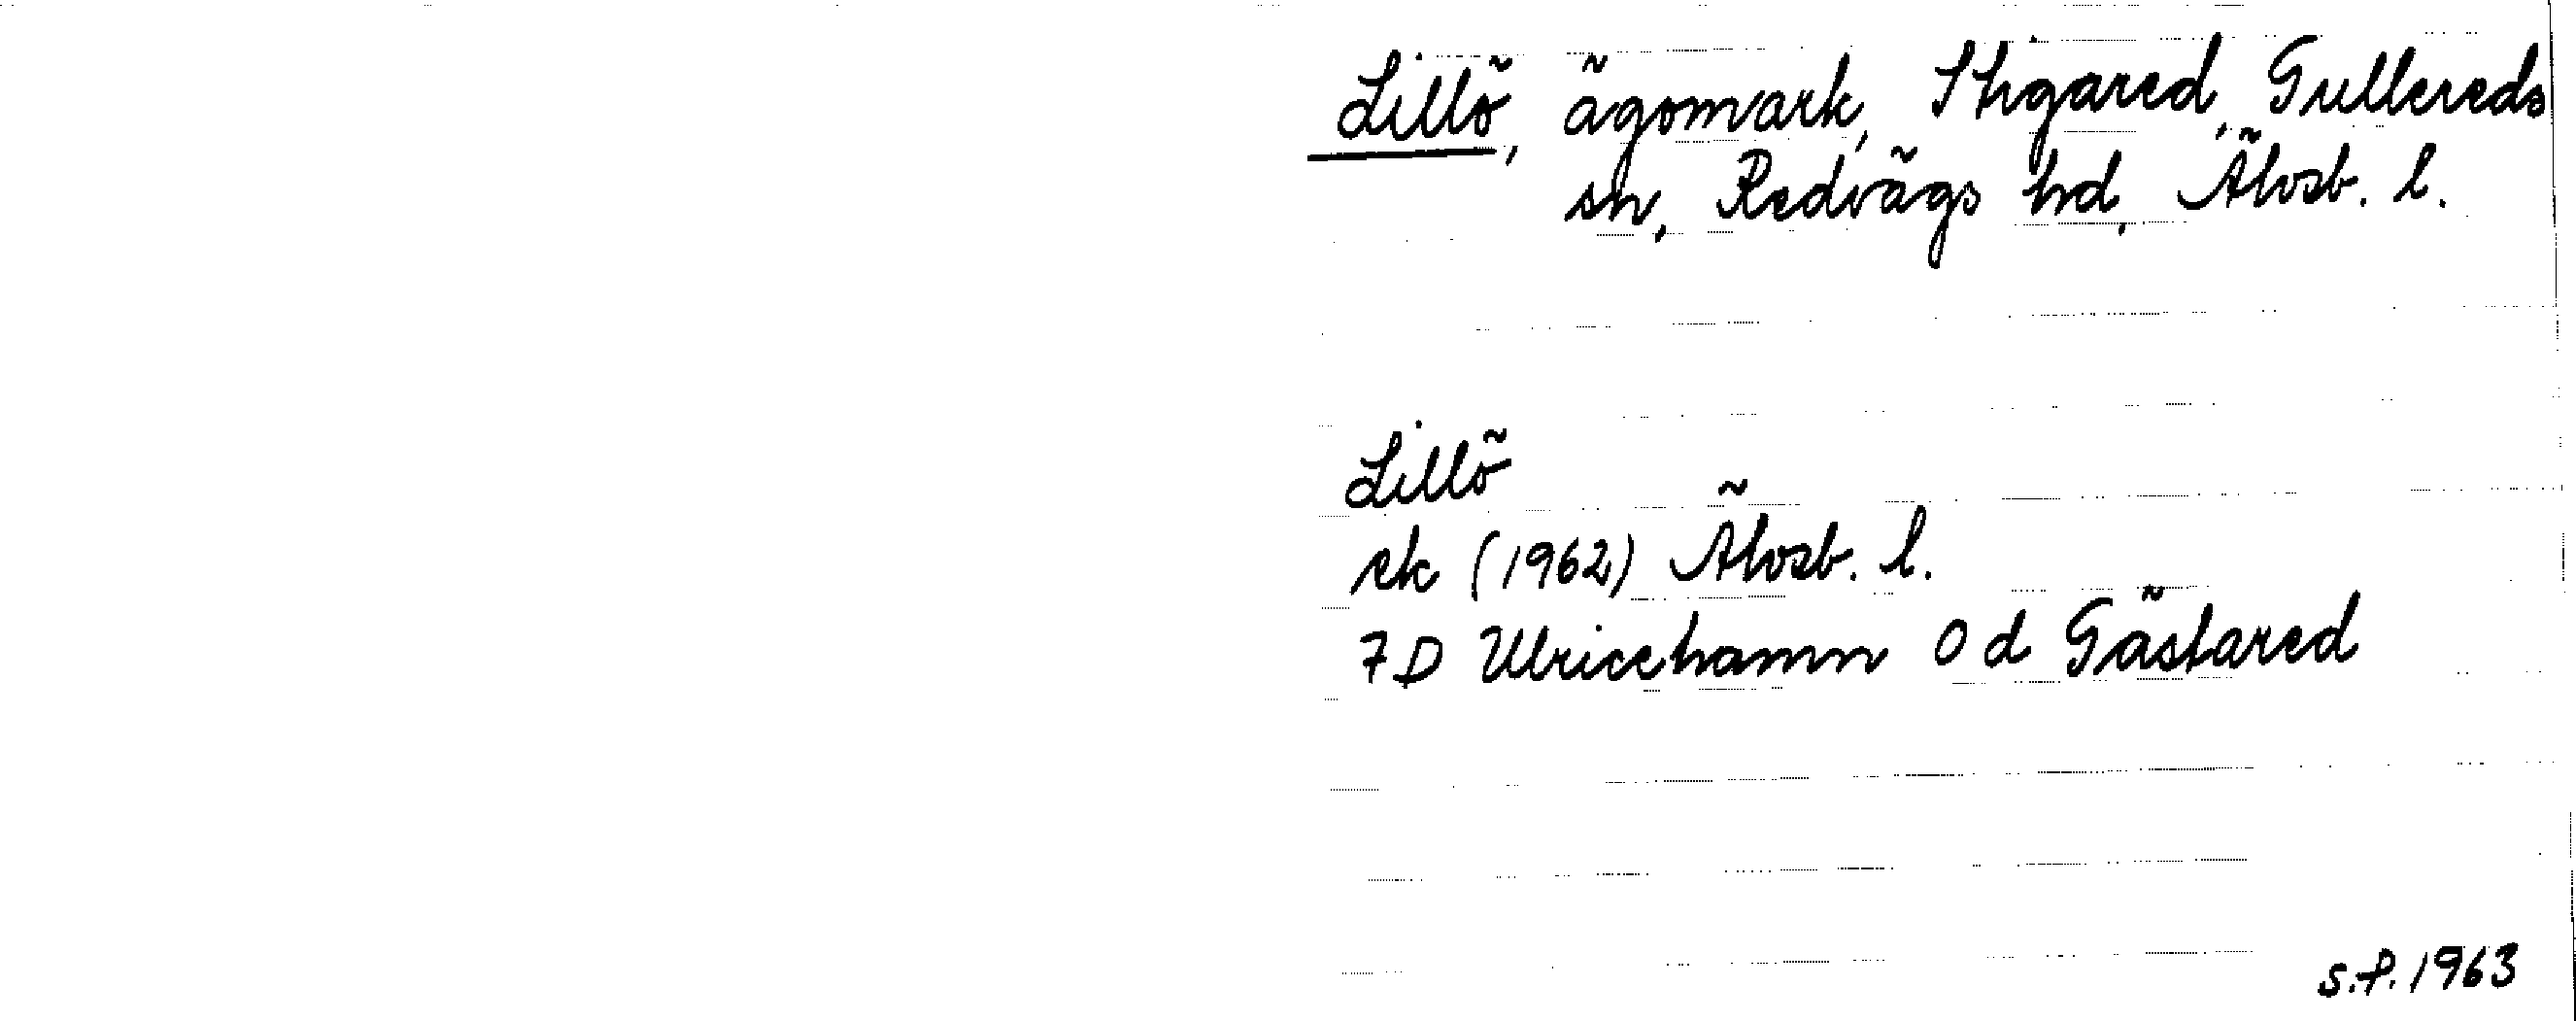 Lillö, ägomark, Stigared, Gullereds
sn, Redvägs hd, Älvsb. l.
Lillö
ek (1962) Älvsb. l.
7D Ulricehamn 0 d Gästared
S.F. 1963